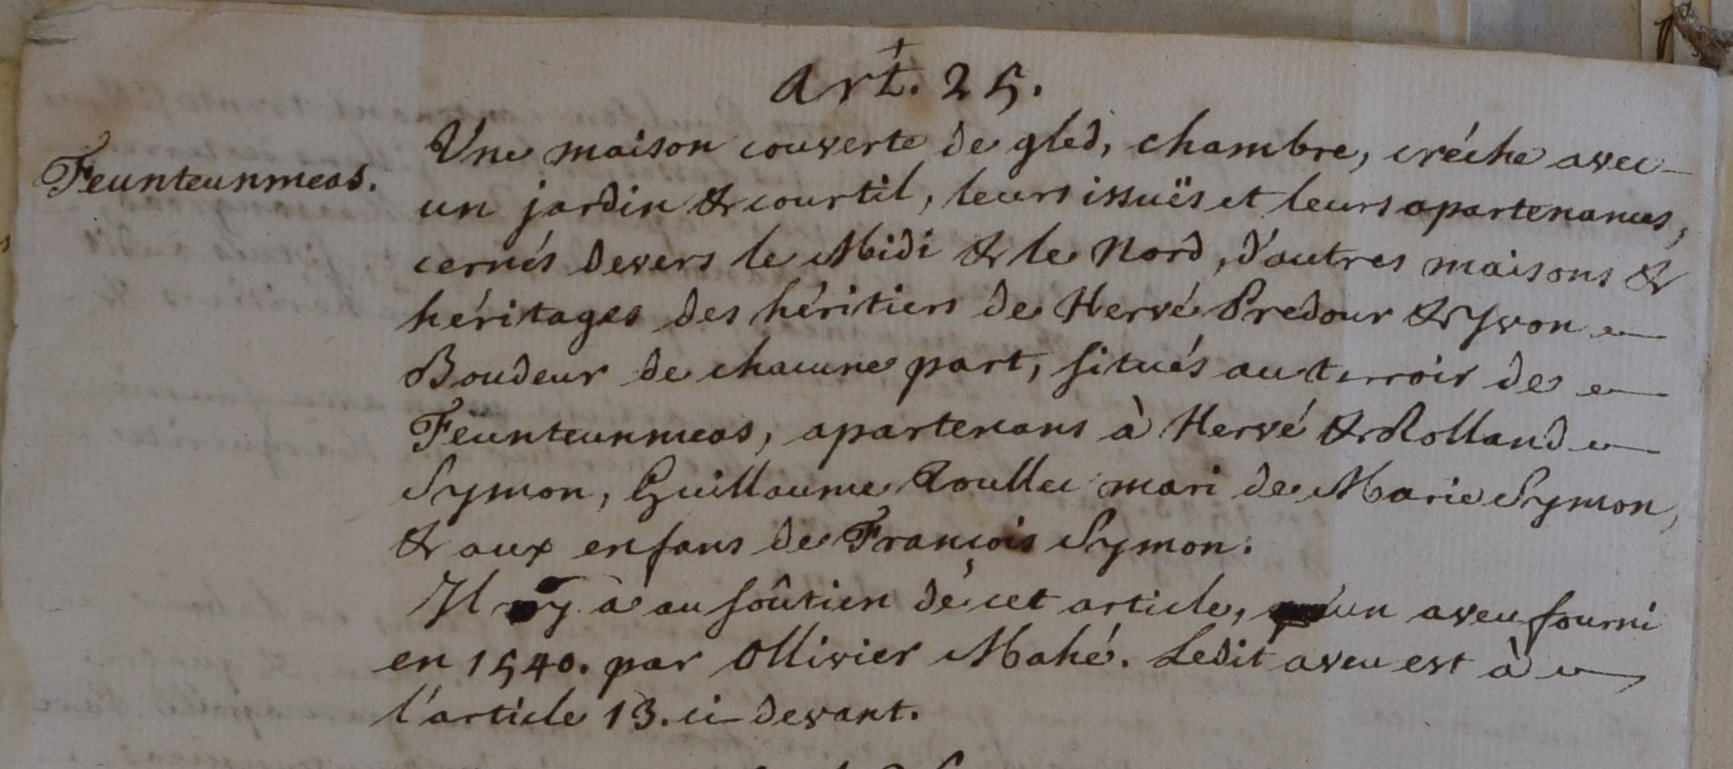 Art. 25.
Feunteunmeas.
Une maison couverte de gled, chambre, créche avec
un jardin & courtil, leurs issuës et leurs apartenances,
cernés devers le Midi & le Nord, d'autres maisons &
héritages des héritiers de Hervé Predour & Yvon
Boudeur de chacune part, situés au terroir de
Feunteunmeas, apartenans à Hervé & Rolland
Symon, Guillaume Roullec mari de Marie Symon,
& aux enfans de François Symon.
Il y a au soûtien de cet article, un aveu fourni
en 1540. par Ollivier Mahé. Ledit aveu est à
l'article 13. ci-devant.